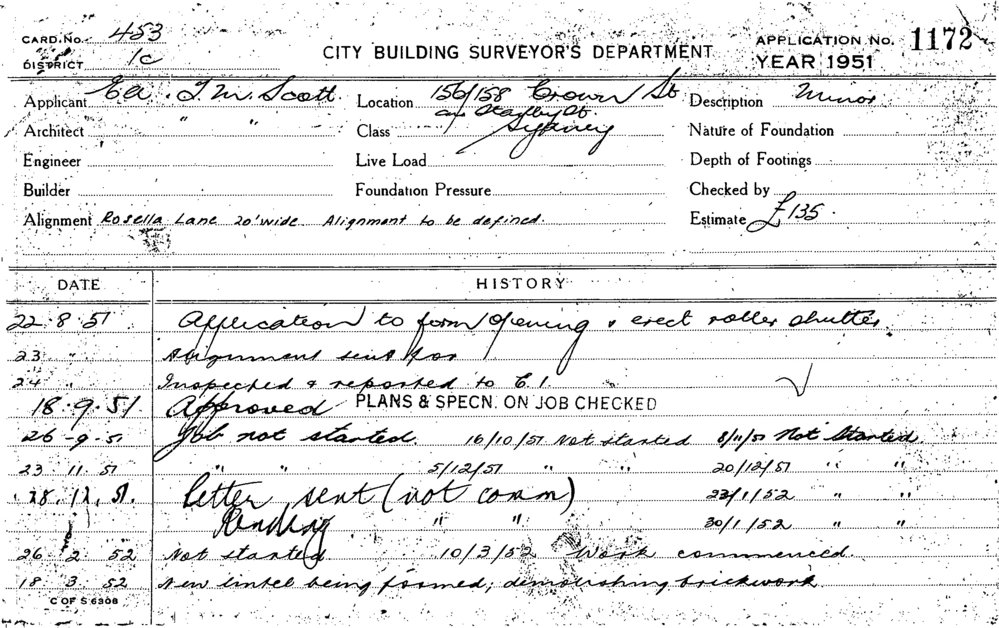 CARD. No. 453
DISTRICT 1c
CITY BUILDING SURVEYOR'S DEPARTMENT
APPLICATION No. 1172
YEAR 1951
Applicant T. M. Scott. Location 156/158 Crown St Description Minor
Architect " " Class Sydney Nature of Foundation
Engineer Live Load Depth of Footings
Builder Foundation Pressure Checked by
Alignment Rosella Lane 20' wide Alignment to be defined. Estimate £135.
DATE HISTORY
22.8.51 Application to form opening & erect roller shutter
23 " Alignment sent for
24 " Inspected & reported to C.I.
18.9.51 Approved PLANS & SPECN. ON JOB CHECKED
26-9-51 Job not started. 16/10/51 Not started 8/11/51 Not Started
23 11 51 " " 5/12/51 " " 20/12/51 " "
51. Letter sent (not comm) 23/1/52 " "
Pending " " 30/1/52 " "
26 2 52 Not started 10/3/52 Work commenced.
18 3 52 New lintel being formed; demolishing brickwork
C OF S 6308